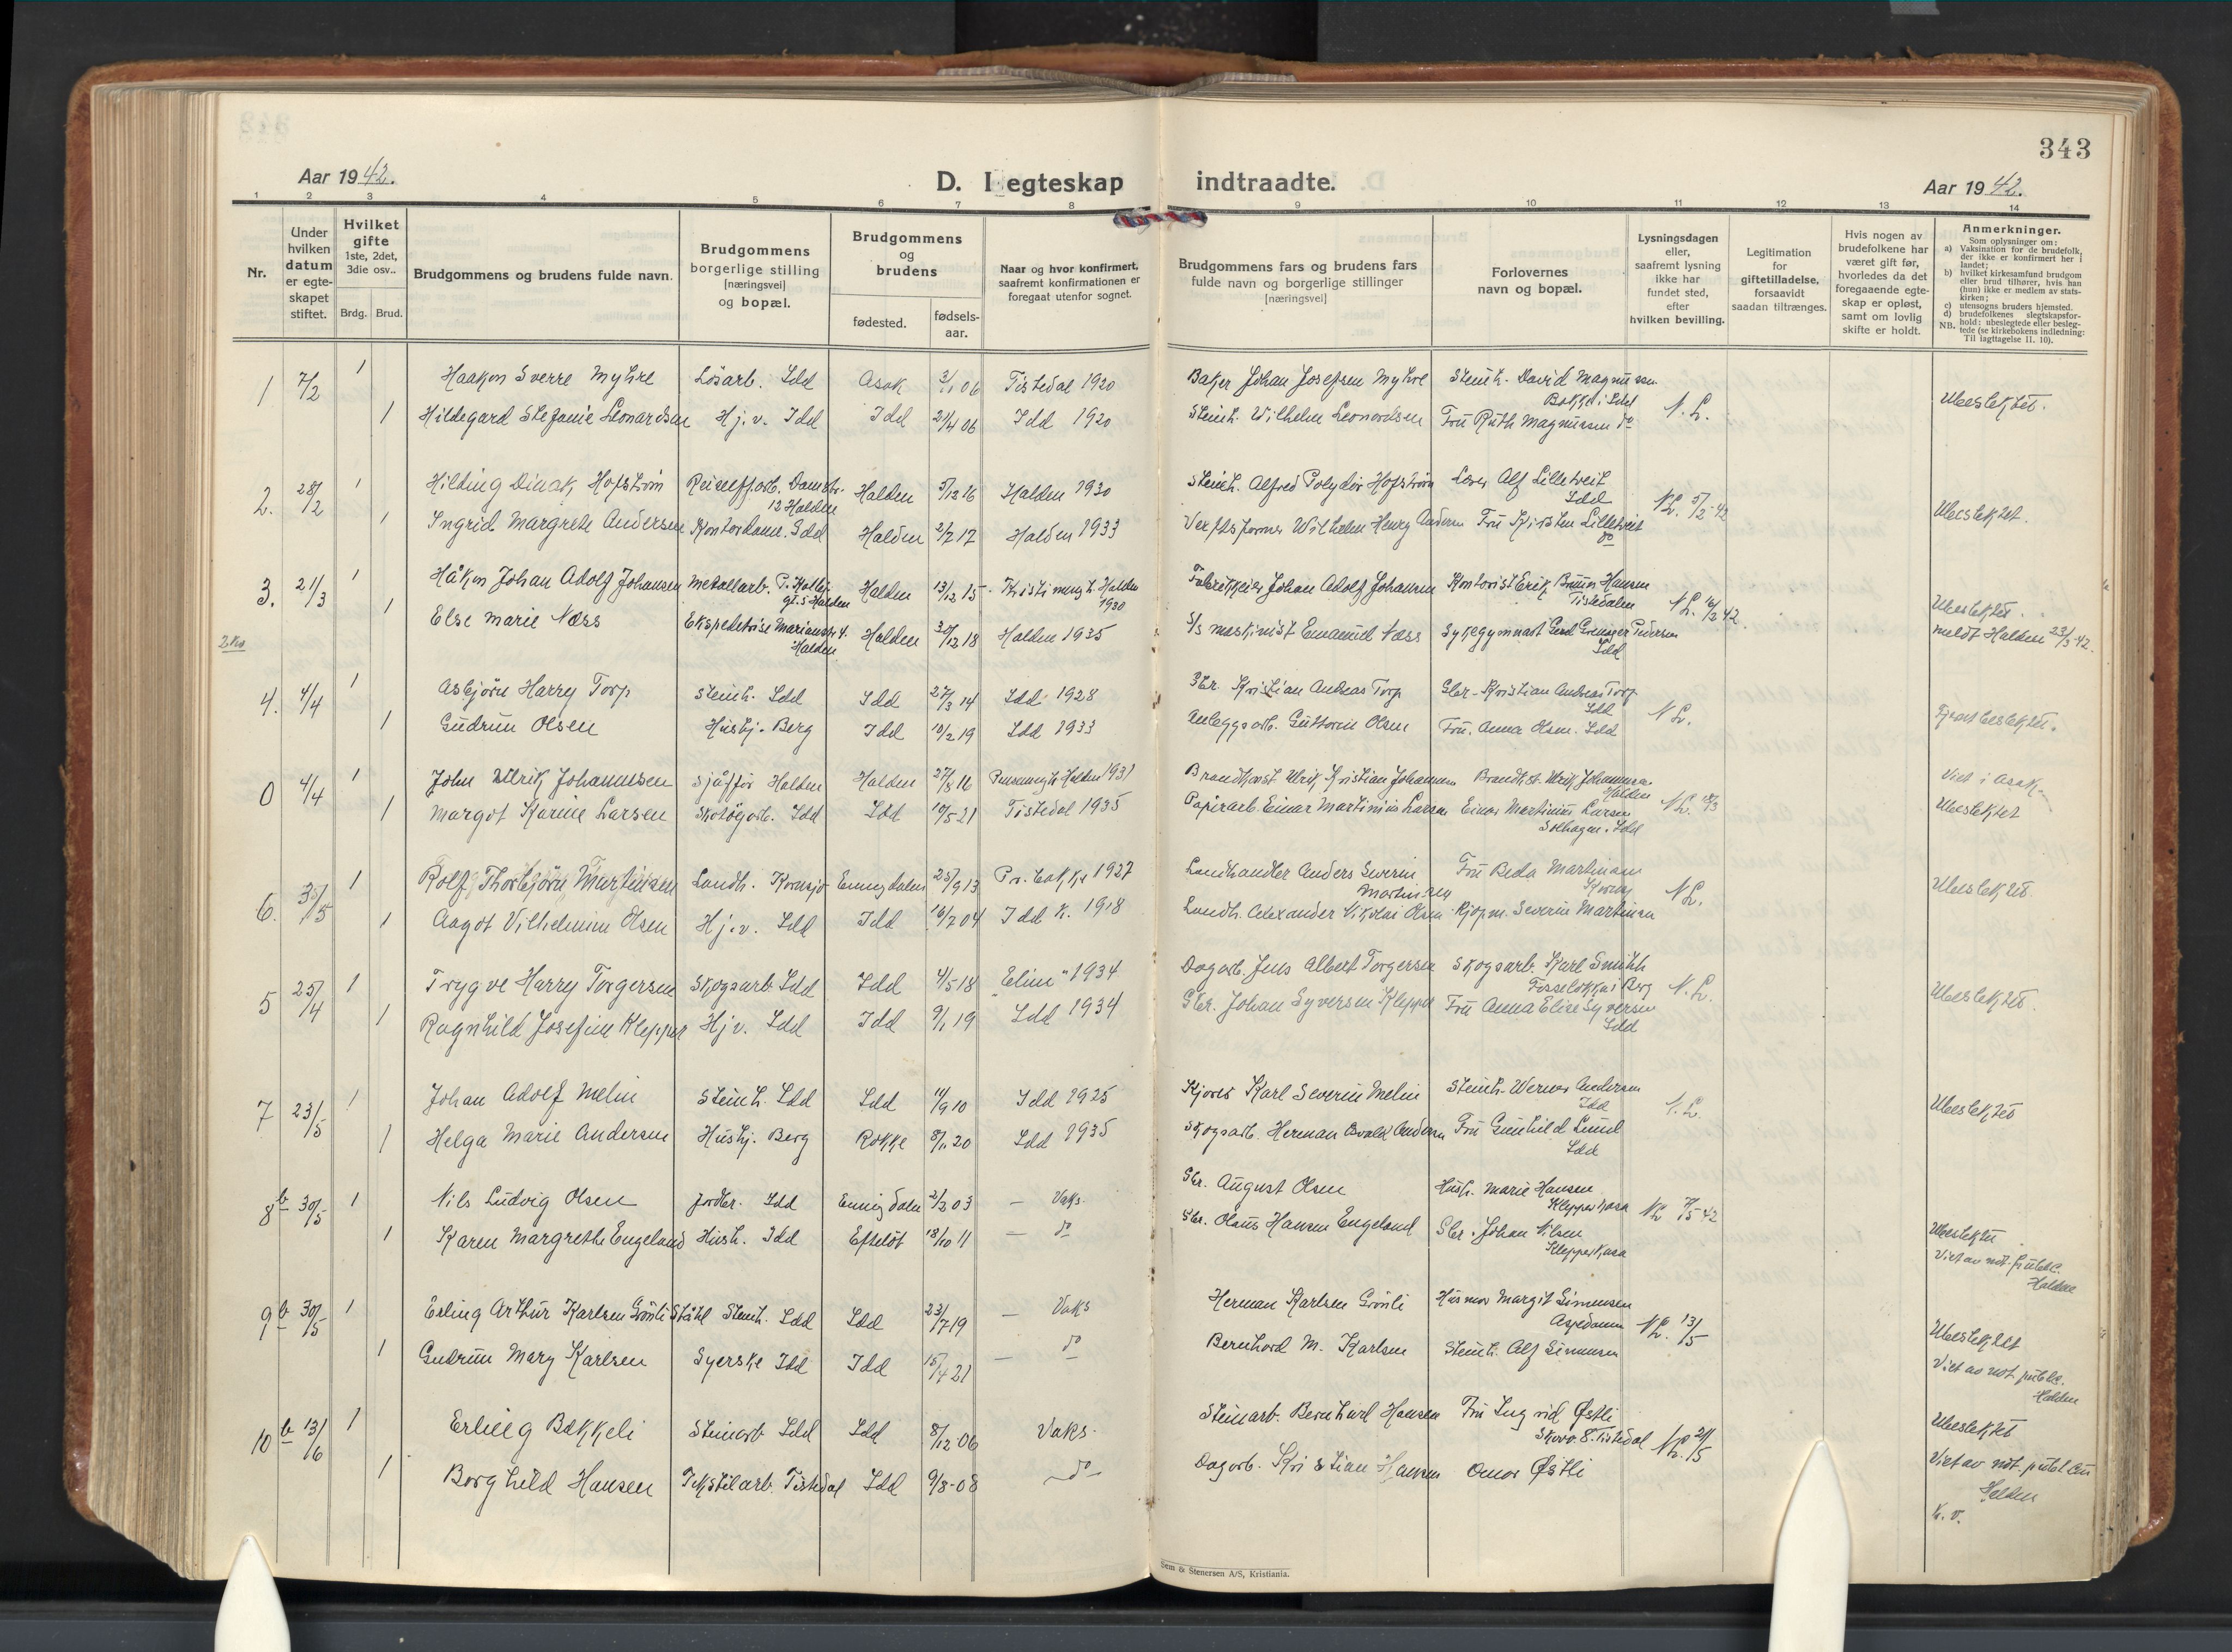 343
Aar 1942.
D. I egteskap indtraadte.
Aar 1942.
1 2 3 4 5 6 7 8 9 10 11 12 13 14
Nr.
Under hvilken datum er egte-skapet stiftet.
Hvilket gifte 1ste, 2det, 3die osv..
Brdg. Brud.
Brudgommens og brudens fulde navn.
Brudgommens borgerlige stilling [næringsvei] og bopæl.
Brudgommens og brudens
fødested.
fødsels-aar.
Naar og hvor konfirmert, saafremt konfirmationen er foregaat utenfor sognet.
Brudgommens fars og brudens fars fulde navn og borgerlige stillinger [næringsvei]
Forlovernes navn og bopæl.
Lysningsdagen eller, saafremt lysning ikke har fundet sted, efter hvilken bevilling.
Legitimation for giftetilladelse, forsaavidt saadan tiltrænges.
Hvis nogen av brudefolkene har været gift før, hvorledes da det foregaaende egte-skap er opløst, samt om lovlig skifte er holdt.
Anmerkninger.
Som oplysninger om:
a) Vaksination for de brudefolk, der ikke er konfirmert her i landet;
b) hvilket kirkesamfund brudgom eller brud tilhører, hvis han (hun) ikke er medlem av stats-kirken;
c) utensogns bruders hjemsted.
d) brudefolkenes slegtskapsfor-hold: ubeslegtede eller besleg-tede (se kirkebokens indledning:
NB. Til iagttagelse II. 10).
1 7/2 1 Haakon Sverre Myhre Løsarb. Idd Asak 3/1 06 Tistedal 1920 Baker Johan Josefsen Myhre Steinh. David Magnussen Bakke i Idd
1 Hildegard Stefanie Leonardsen Hj. v. Idd Idd 21/4 06 Idd 1920 Steinh. Vilhelm Leonardsen Fru Ruth Magnussen do N. L. Ubeslektet.
2. 28/2 1 Hilding Dinak Hofstrøm Halden 5/12 16 Halden 1930 Steinh. Alfred Polydor Hofstrøm Alf Lilletveit Idd
12 Halden
1 Ingrid Margrete Andersen Kontordame. Idd Halden 2/7 17 Halden 1933 Wilhelm Henry Andersen Fru Kirsten Lilletveit do N.L. 5/2-42 Ubeslektet.
3. 21/3 1 Håkon Johan Adolf Johansen Metallarb. Halden Halden 13/12 15 Halden 1930 Johan Adolf Johansen Kontorist Erik Bruun Hansen Tistedalen
1 Else Marie Næss Ekspeditrise Halden Halden 30/12 18 Halden 1935 S/S maskinist Emanuel Næss Sykegymnast Idd N.L. 16/2 42. Ubeslektet.
meldt Halden 23/3-42.
4. 4/4 1 Asbjørn Harry Torp Steinh. Idd Idd 27/3 14 Idd 1928 Gbr. Kristian Andreas Torp Gbr. Kristian Andreas Torp Idd
1 Gudrun Olsen Hushj. Berg Idd 10/2 19 Idd 1933 Anleggsarb. Guttorm Olsen Fru. Anna Olsen. Idd N L. Fjernt beslektet.
0 4/4 1 John Ulrik Johannesen Sjåffør Halden Halden 27/8 16 Halden 1931 Ulrik Kristian Johannesen Ulrik Johannesen Halden Viet i Asak
1 Margot Karine Larsen Skotøyarb. Idd Idd 10/5 21 Tistedal 1935 Papirarb. Einar Martinius Larsen Einar Martinius Larsen Solhagen, Idd N L. 18/3 Ubeslektet
6. 30/5 1 Rolf Thorbjørn Martinsen Landh. Kornsjø Enningdalen 25/9 13 Pr. bakke 1927 Landhandler Anders Severin Martinsen Fru Beda Martinsen
1 Aagot Vilhelmine Olsen Hj. v. Idd Idd 16/7 04 Idd K. 1918 Landh. Alexander Nikolai Olsen Kjøpm. Severin Martinsen N L. Ubeslektet.
5 25/4 1 Trygve Harry Torgersen Skogsarb Idd Idd 4/5 18 "Elim" 1934 Dagarb. Jens Albert Torgersen Skogsarb. Karl Smith Fosseløkka i Berg
1 Ragnhild Josefine Klepper Hj v. Idd Idd 9/1 19 Idd 1934 Gbr. Johan Syversen Klepper Fru Anna Elise Syversen Idd N. L. Ubeslektet.
7 23/5 1 Johan Adolf Melin Steinh. Idd Idd 11/9 10 Idd 1925 Kjører Karl Severin Melin Steinh. Werner Andersen Idd
1 Helga Marie Andersen Hushj. Berg Rokke 8/1 20 Idd 1935 Skogsarb. Herman Osvald Andersen Fru Gunhild Lund Idd N. L. Ubeslektet
8 b 30/5 1 Nils Ludvig Olsen Jordbr. Idd Enningdalen 2/2 03 — Vaks. Gbr. August Olsen Hush. Marie Hansen Klepperkasa
1 Karen Margrethe Engeland Hush. Idd Efteløt 18/10 11 — do Gbr. Olaus Hansen Engeland Gbr. Johan Nilsen Klepperkasa N L 7/5-42 Ubeslektet
Viet av not. public. Halden
9 b 30/5 1 Erling Arthur Karlsen Grønli Ståhl Steinh. Idd Idd 23/7 19 — Vaks Herman Karlsen Grønli Husmor Margit Simensen Aspedammen
1 Gudrun Mary Karlsen Syerske Idd Idd 15/4 21 — do Bernhard M. Karlsen Steinh. Alf Simensen N L. 13/5 Ubeslektet
Viet av not public. Halden
10 b 13/6 1 Erling Bakkeli Steinarb Idd Idd 8/12-06 Vaks. Steinarb. Bernhard Hansen Fru Ingrid Østli Tistedal
1 Borghild Hansen Tekstilarb. Tistedal Idd 9/8-08 do Dagarb. Kristian Hansen Omar Østli N L. 21/5 Ubeslektet
Viet av not. public Halden
K. v.
2. Kv
Sem & Stenersen A/S, Kristiania.